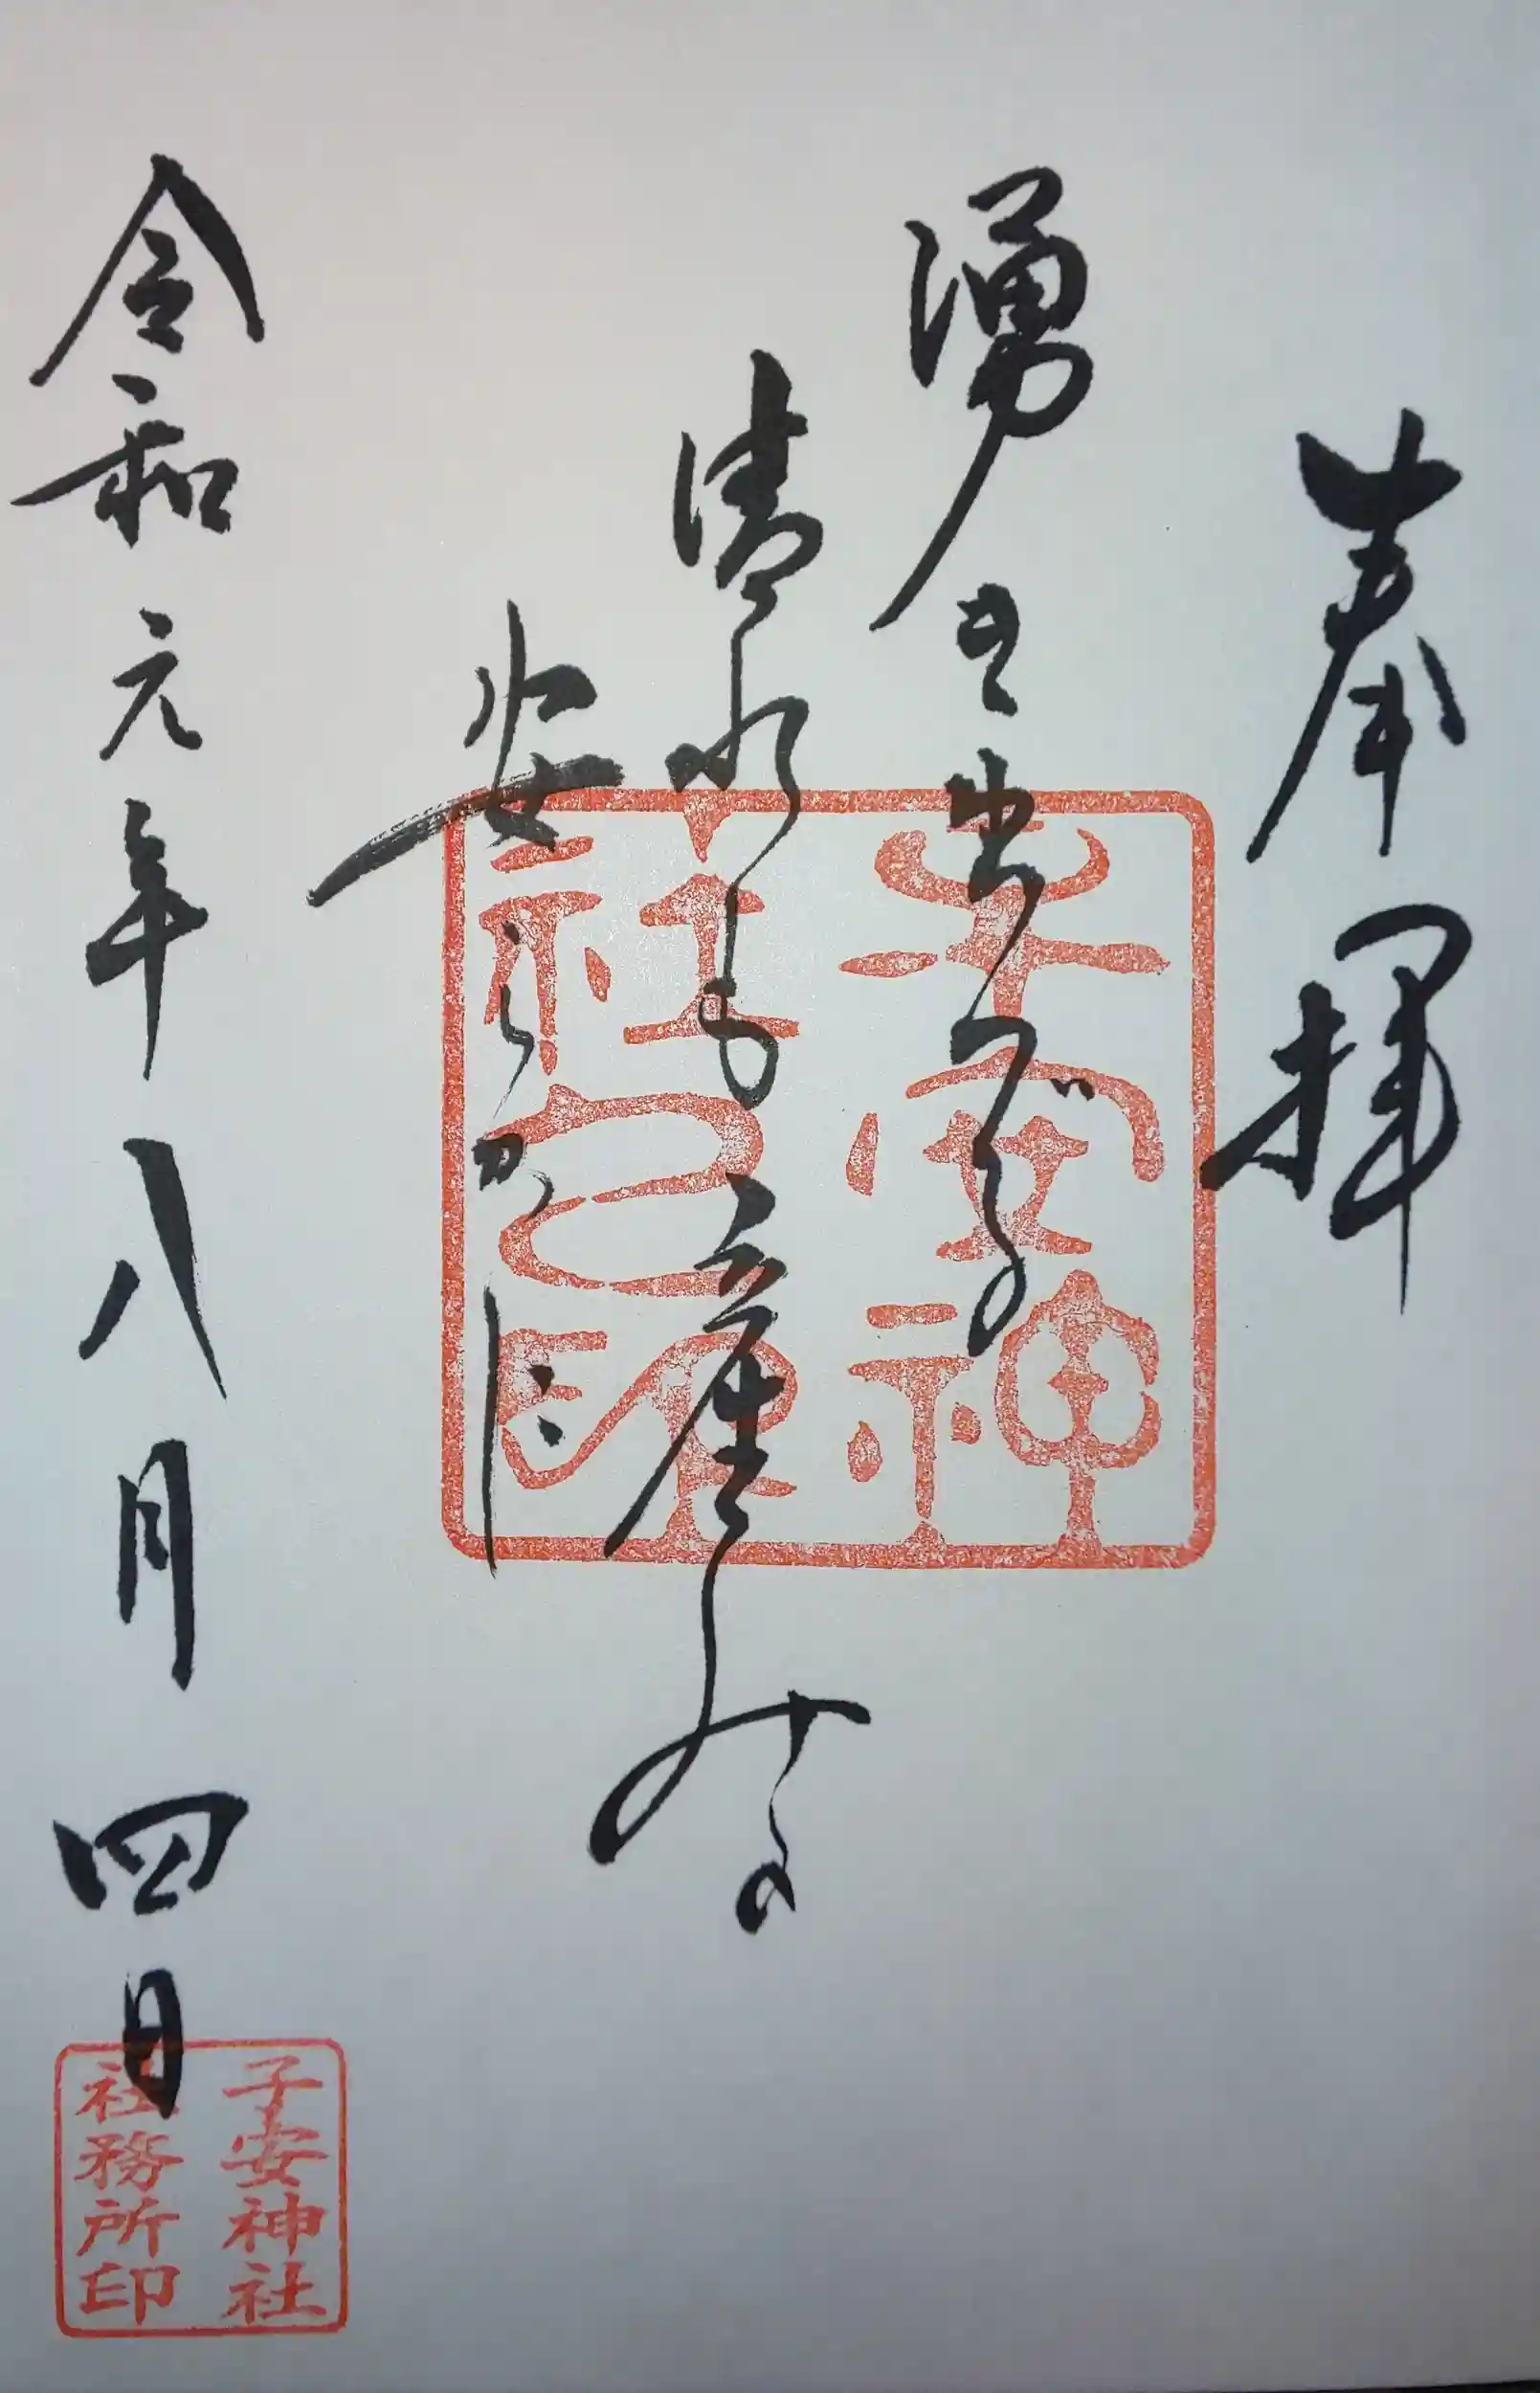 奉拝
湧き出づる
清水も産みの
安らかに
令和元年八月四日
子安神
社之印
子安神社
社務所印